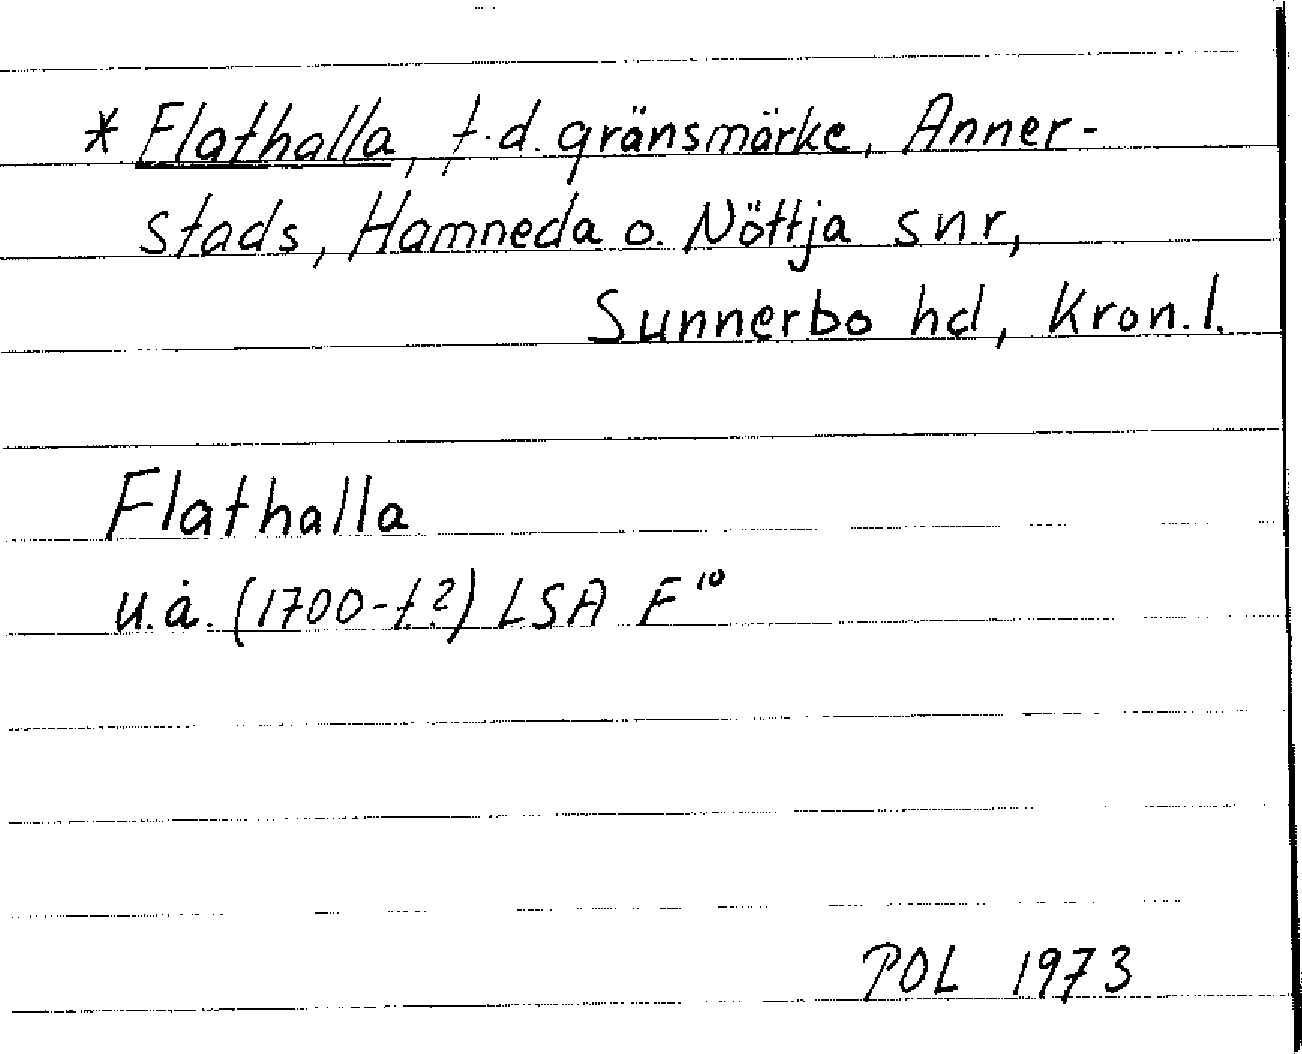 * Flathalla, f.d. gränsmärke, Anner-
stads, Hamneda o. Nöttja snr,
Sunnerbo hd, Kron.l.
Flathalla
u.å. (1700-t?) LSA F¹⁰
POL 1973